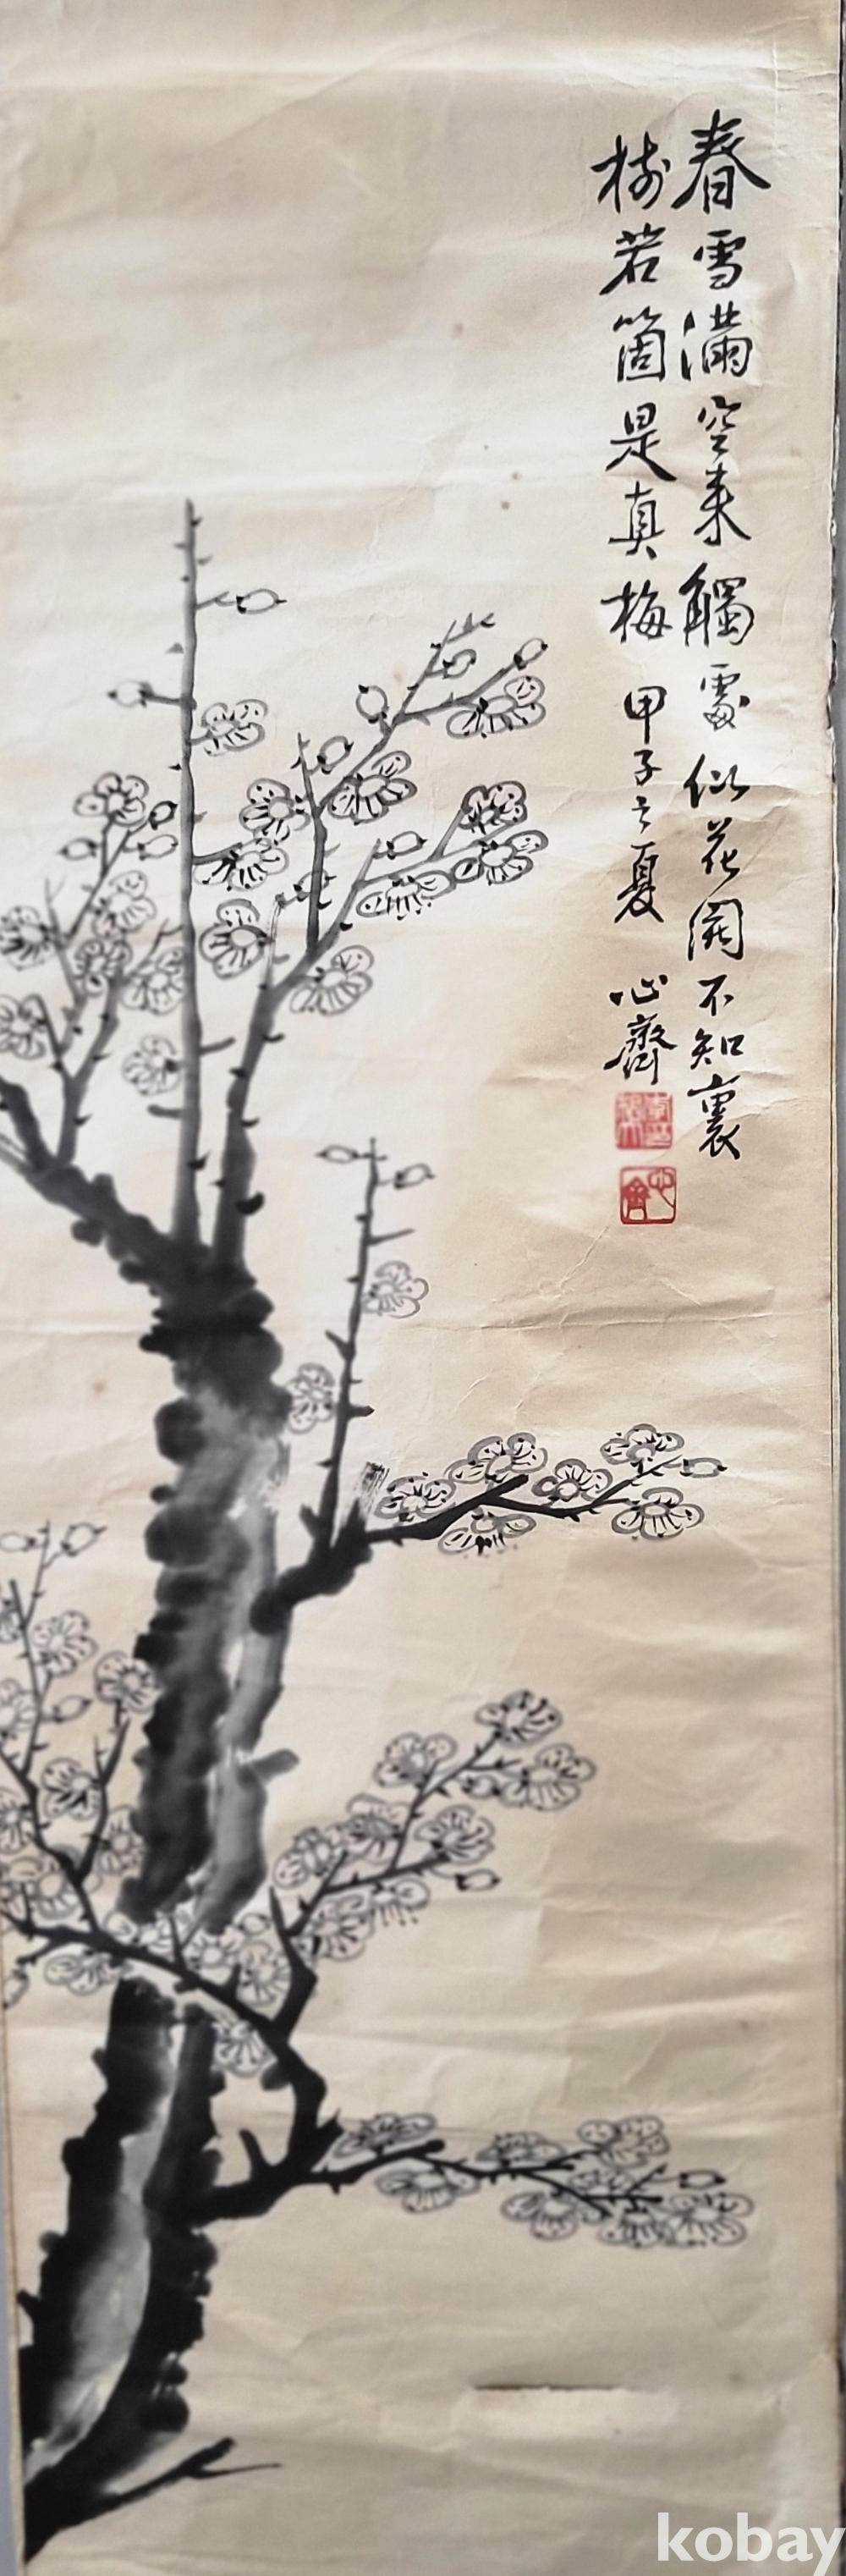 春雪滿空來觸處似花開不知裏
樹若箇是真梅 甲子之夏 心齋
kobay